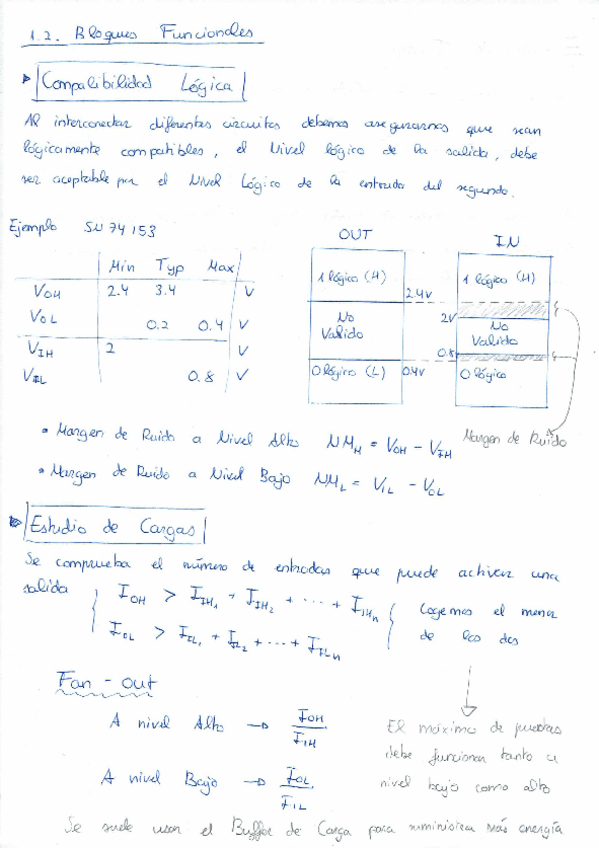 1.2. Bloques Funcionales
Compatibilidad Lógica
Al interconectar diferentes circuitos debemos asegurarnos que sean
lógicamente compatibles, el Nivel lógico de la salida, debe
ser aceptable por el Nivel Lógico de la entrada del segundo.
Ejemplo SN 74 153
Min Typ Max
VOH 2.4 3.4 V
VOL 0.2 0.4 V
VIH 2 V
VIL 0.8 V
OUT
1 lógico (H)
2.4V
No
Valido
0 lógico (L) 0.4V
IN
1 lógico (H)
2V
No
Valido
0.8
0 lógico
Margen de Ruido
• Margen de Ruido a Nivel Alto NMH = VOH - VIH
• Margen de Ruido a Nivel Bajo NML = VIL - VOL
Estudio de Cargas
Se comprueba el número de entradas que puede activar una
salida
IOH > IIH1 + IIH2 + ... + IIHn
IOL > IIL1 + IIL2 + ... + IILn
Cogemos el menor
de los dos
Fan-out
A nivel Alto → IOH / IIH
A nivel Bajo → IOL / IIL
El máximo de puertas
debe funcionar tanto a
nivel bajo como alto
Se suele usar el Buffer de Carga para suministrar más energía